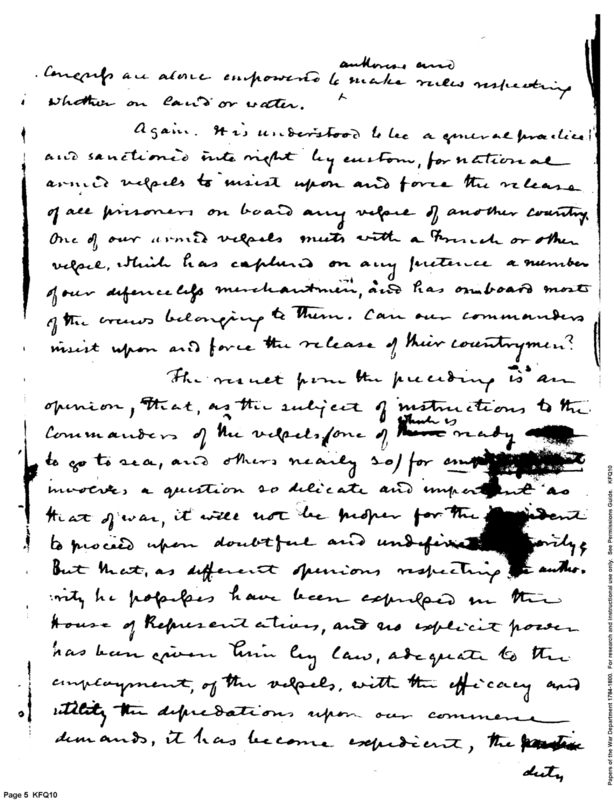 authorise and
Congress are alone empowered to make rules respecting
whether on land or water.
Again. It is understood to be a general practice
and sanctioned into right by custom, for national
armed vessels to insist upon and force the release
of all prisoners on board any vessel of another country.
One of our armed vessels meets with a French or other
vessel, which has captured on any pretence a number
of our defenceless merchantmen, and has on board most
of the crews belonging to them. Can our commanders
insist upon and force the release of their countrymen?
The result from the preceding is an
opinion, that, as the subject of instructions to the
Commanders of the vessels (one of which is ready
to go to sea, and others nearly so) for
involves a question so delicate and important as
that of war, it will not be proper for the President
to proceed upon doubtful and undefined authority;
But that, as different opinions respecting the autho-
rity he possesses have been expressed in the
House of Representatives, and no explicit power
has been given him by law, adequate to the
employment, of the vessels, with the efficacy and
utility the depredations upon our commerce
demands, it has become expedient, the
duty
Page 5 KFQ10
Papers of the War Department 1784-1800. For research and instructional use only. See Permissions Guide. KFQ10